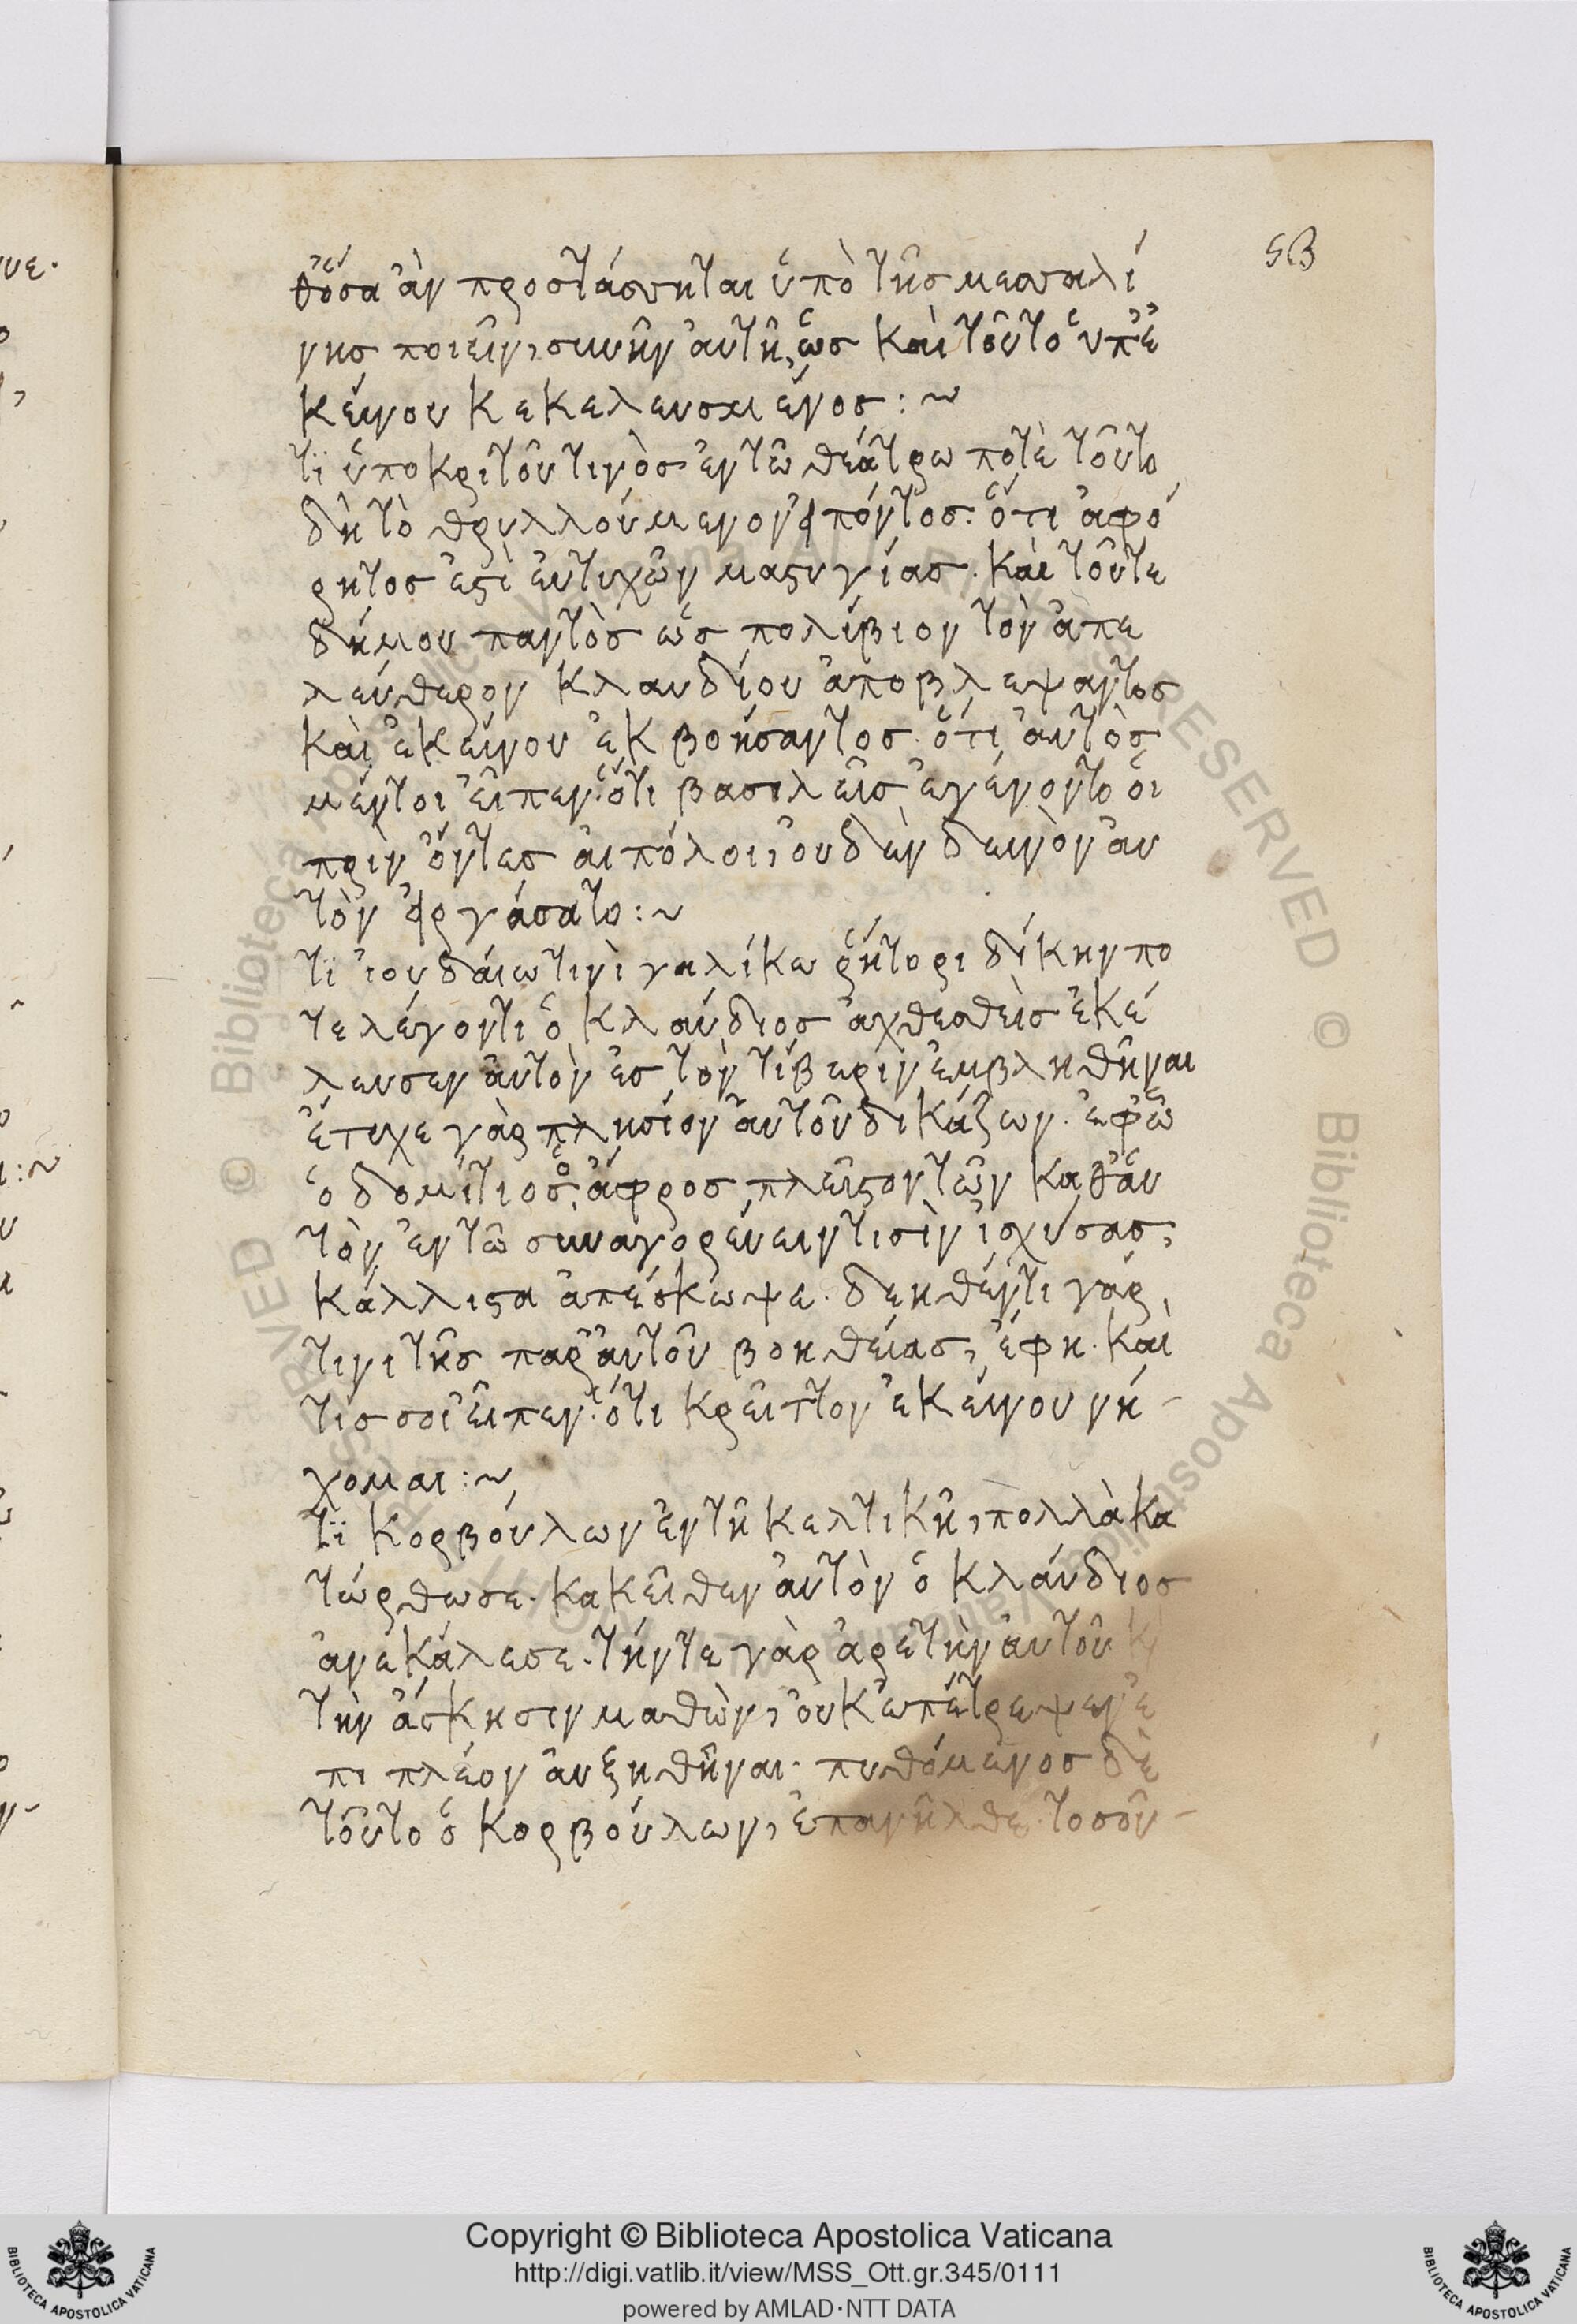 53
θ' ὅσα ἂν προστάσσηται ὑπὸ τῆς μεσσαλί
νης ποιεῖν, συνῆν αὐτῆ, ὡς καὶ τοῦτο ὑπ' ἐ
κείνου κεκελευσμένος :~
τϊ ὑποκριτοῦ τινὸς ἐν τῶ θεάτρω ποτὲ τοῦτο
δὴ τὸ θρυλλούμενον εἰπόντος. ὅτι ἀφό
ρητος ἐστὶ εὐτυχῶν μαστιγίας. καὶ τοῦτε
δήμου παντὸς ὡς πολύβιον τὸν ἀπε
λεύθερον κλαυδίου ἀποβλέψαντος
καὶ ἐκείνου ἐκβοήσαντος. ὅτι αὐτὸς
μέντοι εἶπεν. ὅτι βασιλεῖς ἐγένοντο οἱ
πρὶν ὄντες αἰπόλοι, οὐδὲν δεινὸν αυ
τὸν εἰργάσατο :~
τϊ ἰουδαίω τινὶ γαλίκω ῥήτορι δίκην πο
τε λέγοντι ὁ κλαύδιος ἀχθεσθεὶς ἐκέ
λευσεν αὐτὸν ἐς τὸν τίβεριν ἐμβληθῆναι
ἔτυχε γὰρ πλησίον αὐτοῦ δικάζων. ἐφ' ὧ
ὁ δομίτιος ὁ ἄφρος πλεῖστον τῶν καθ' ἁυ
τὸν ἐν τῶ συναγορεύειν τισὶν ἰσχύσας,
κάλλιστα ἀπέσκωψε. δεηθέντι γάρ
τινι τῆς παρ' αὐτοῦ βοηθείας, ἔφη. καὶ
τίς σοι εἶπεν. ὅτι κρεῖττον ἐκείνου νή-
χομαι :~
τϊ κορβούλων ἐν τῆ κελτικῆ, πολλὰ κα
τώρθωσε. κακεῖθεν αὐτὸν ὁ κλαύδιος
ἀνεκάλεσε. τήντε γὰρ ἀρετὴν αὐτοῦ κ̀
τὴν ἄσκησιν μαθὼν, οὐκ ἐπέτρεψεν ἐ
πι πλέον αὐξηθῆναι. πυθόμενος δὲ
τοῦτο ὁ κορβούλων, ἐπανῆλθε. τοσοῦ-
Copyright © Biblioteca Apostolica Vaticana
http://digi.vatlib.it/view/MSS_Ott.gr.345/0111
powered by AMLAD·NTT DATA